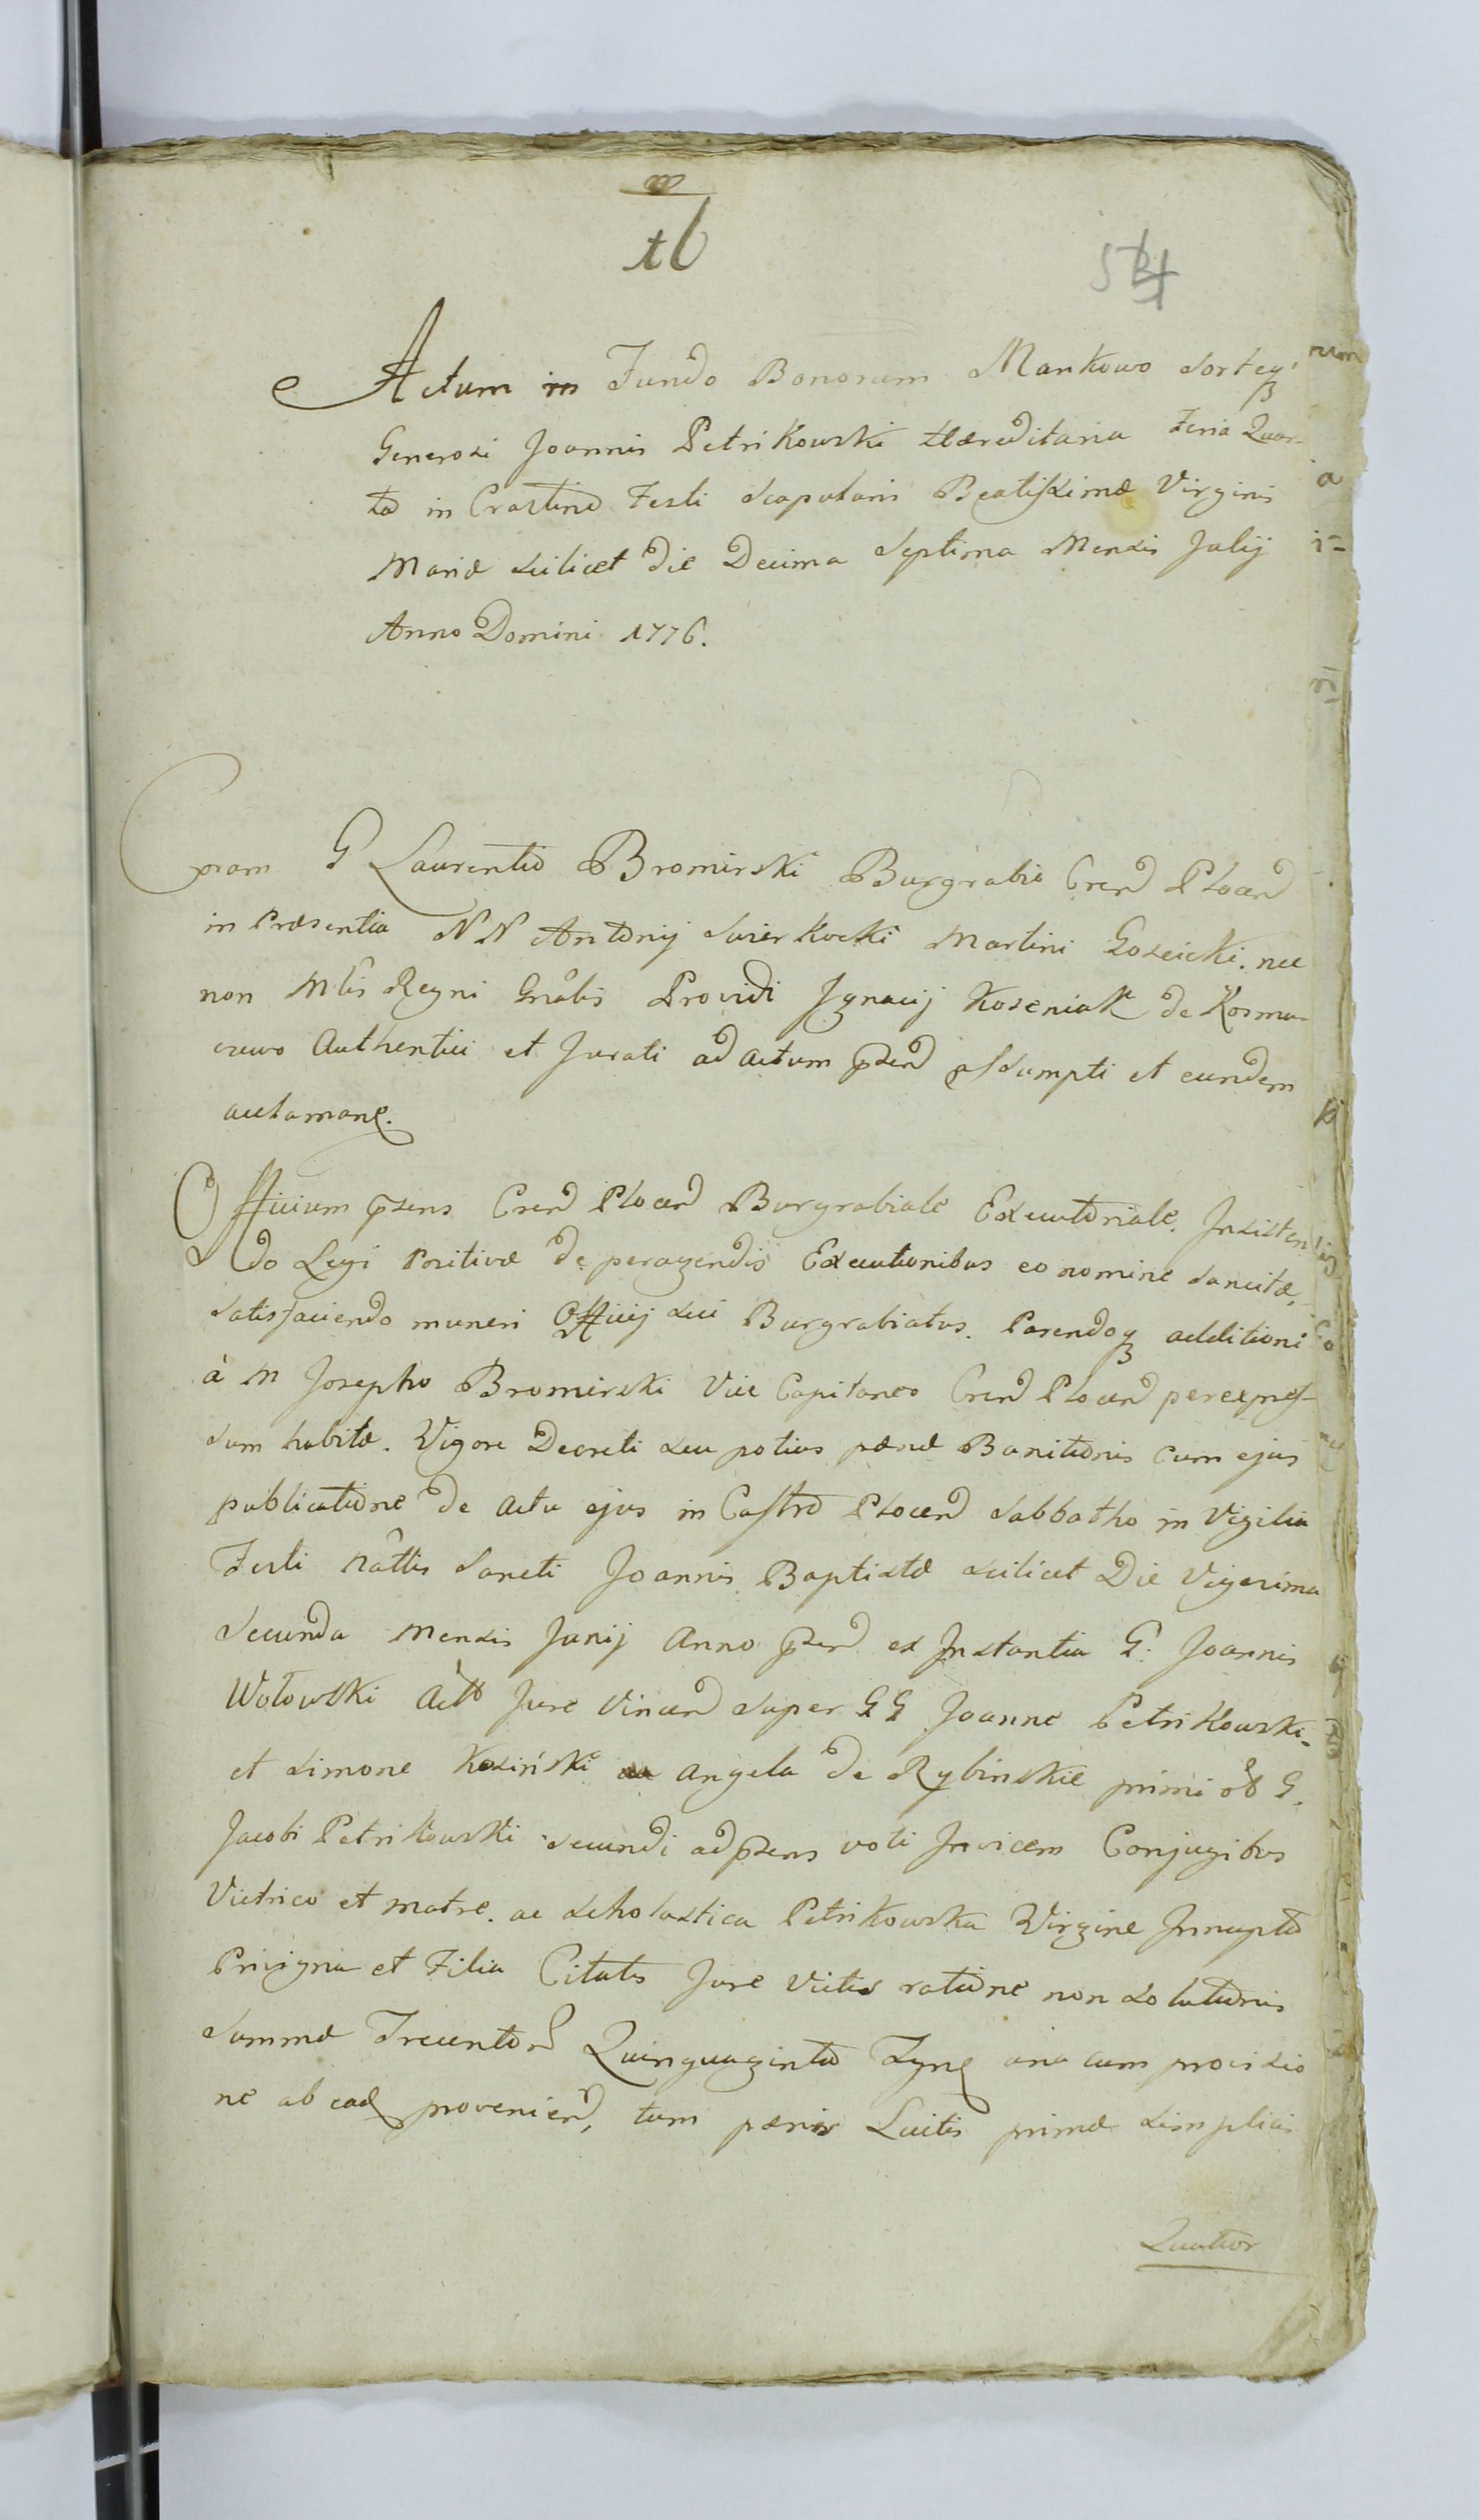 16
Actum in Fundo Bonorum Mankowo Sorteq3
Generosi Joannis Petrikowski Hæreditaria Feria Quar-
ta in Crastino Festi Scapularis Beatissimæ Virginis
Mariæ scilicet Die Decima Septima Mensis Julij
Anno Domini 1776.
Coram G Laurentio Bromirski Burgrabio Cren Plocen
in Præsentia NN Antonij Swierkocki Martini Goscicki. nec
non Mlis Regni Gnalis Providi Jgnacij Koseniak de Kosma-
czewo Authentici et Jurati ad actum psen assumpti et eundem
Officium psens Cren Plocen Burgrabiale Executoriale. Jnsisten
do Legi Positivæ de peragendis Executionibus eo nomine sancitæ,
satisfaciendo muneri Officij sui Burgrabiatus. Parendoq3 additioni
à M Josepho Bromirski Vice Capitaneo Cren Plocen perexpres-
sum habitæ. Vigore Decreti seu potius pænæ Banitionis cum ejus
publicatione de actu ejus in Castro Plocen Sabbatho in Vigilia
Festi Nattis Sancti Joannis Baptistæ scilicet Die Vigesima
Secunda Mensis Junij Anno psen ex Jnstantia G. Joannis
Wołowski Act Jure Vincen super GG Joanne Petrikowski.
et Simone Kosiński Angela de Rybinskie primi ot G.
Jacobi Petrikowski secundi adpsens voti Jnvicem Conjugibus
Vietrico et matre. ac Scholastica Petrikowska Virgine Jnnupta
Privigna et Filia Citatis Jure Victis ratione non Solutionis
Summæ Trecentor Quinquaginta una cum provisio
ne ab ead provenien, tum pænis Luitis primæ simplicis
Quatuor